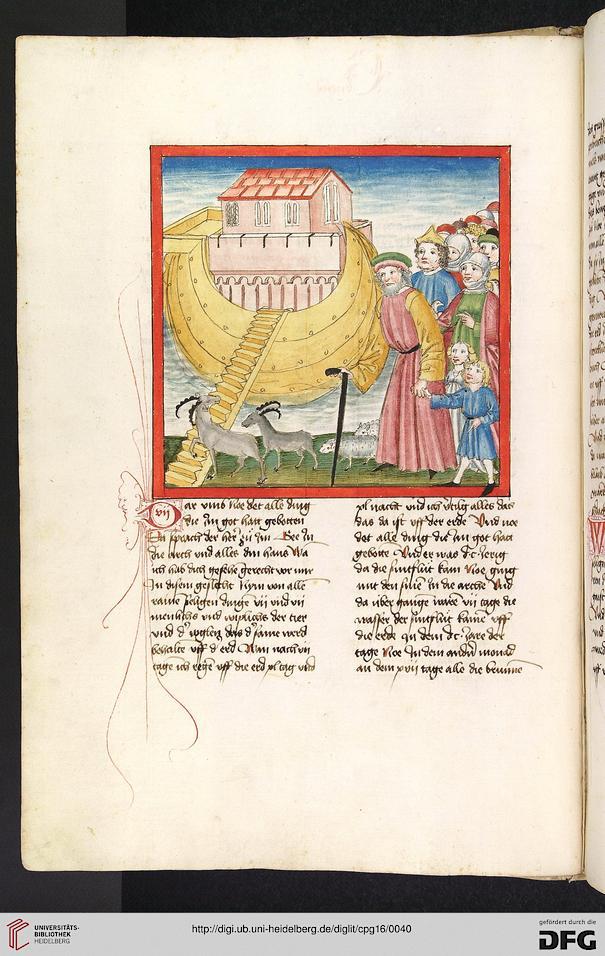 vij
ar vmb Noe det alle ding
die Im got hatt gebotten
Da sprach der her zu Im Gee In
die arch vnd alles din hùus Wa
ich hab dich gesehe gerecht vor mir
In disem geslecht Nym von alle
raine dinge vij vnd vij
menlichs vnd wiplichs der tier
vnd d' das d' same werd
behalte vff d' erd Wan nach vij
tage ich rege vff die erd xl tag vnd
xl nacht vnd ich vertilg alles das
das da ist vff der erde Vnd noe
det alle ding die Im got hat
gebotte Vnd er was dc Jerig
da die sintfluit kam Noe ging
mit den In die arche Vnd
da vber gange ware vij tage die
wasser der sintfluit kame vff
die erde In dem dc Jare der
tage Noe In dem andern monad
an dem xvij tage alle die brunne
UNIVERSITÄTS-
BIBLIOTHEK
HEIDELBERG
http://digi.ub.uni-heidelberg.de/diglit/cpg16/0040
gefördert durch die
DFG